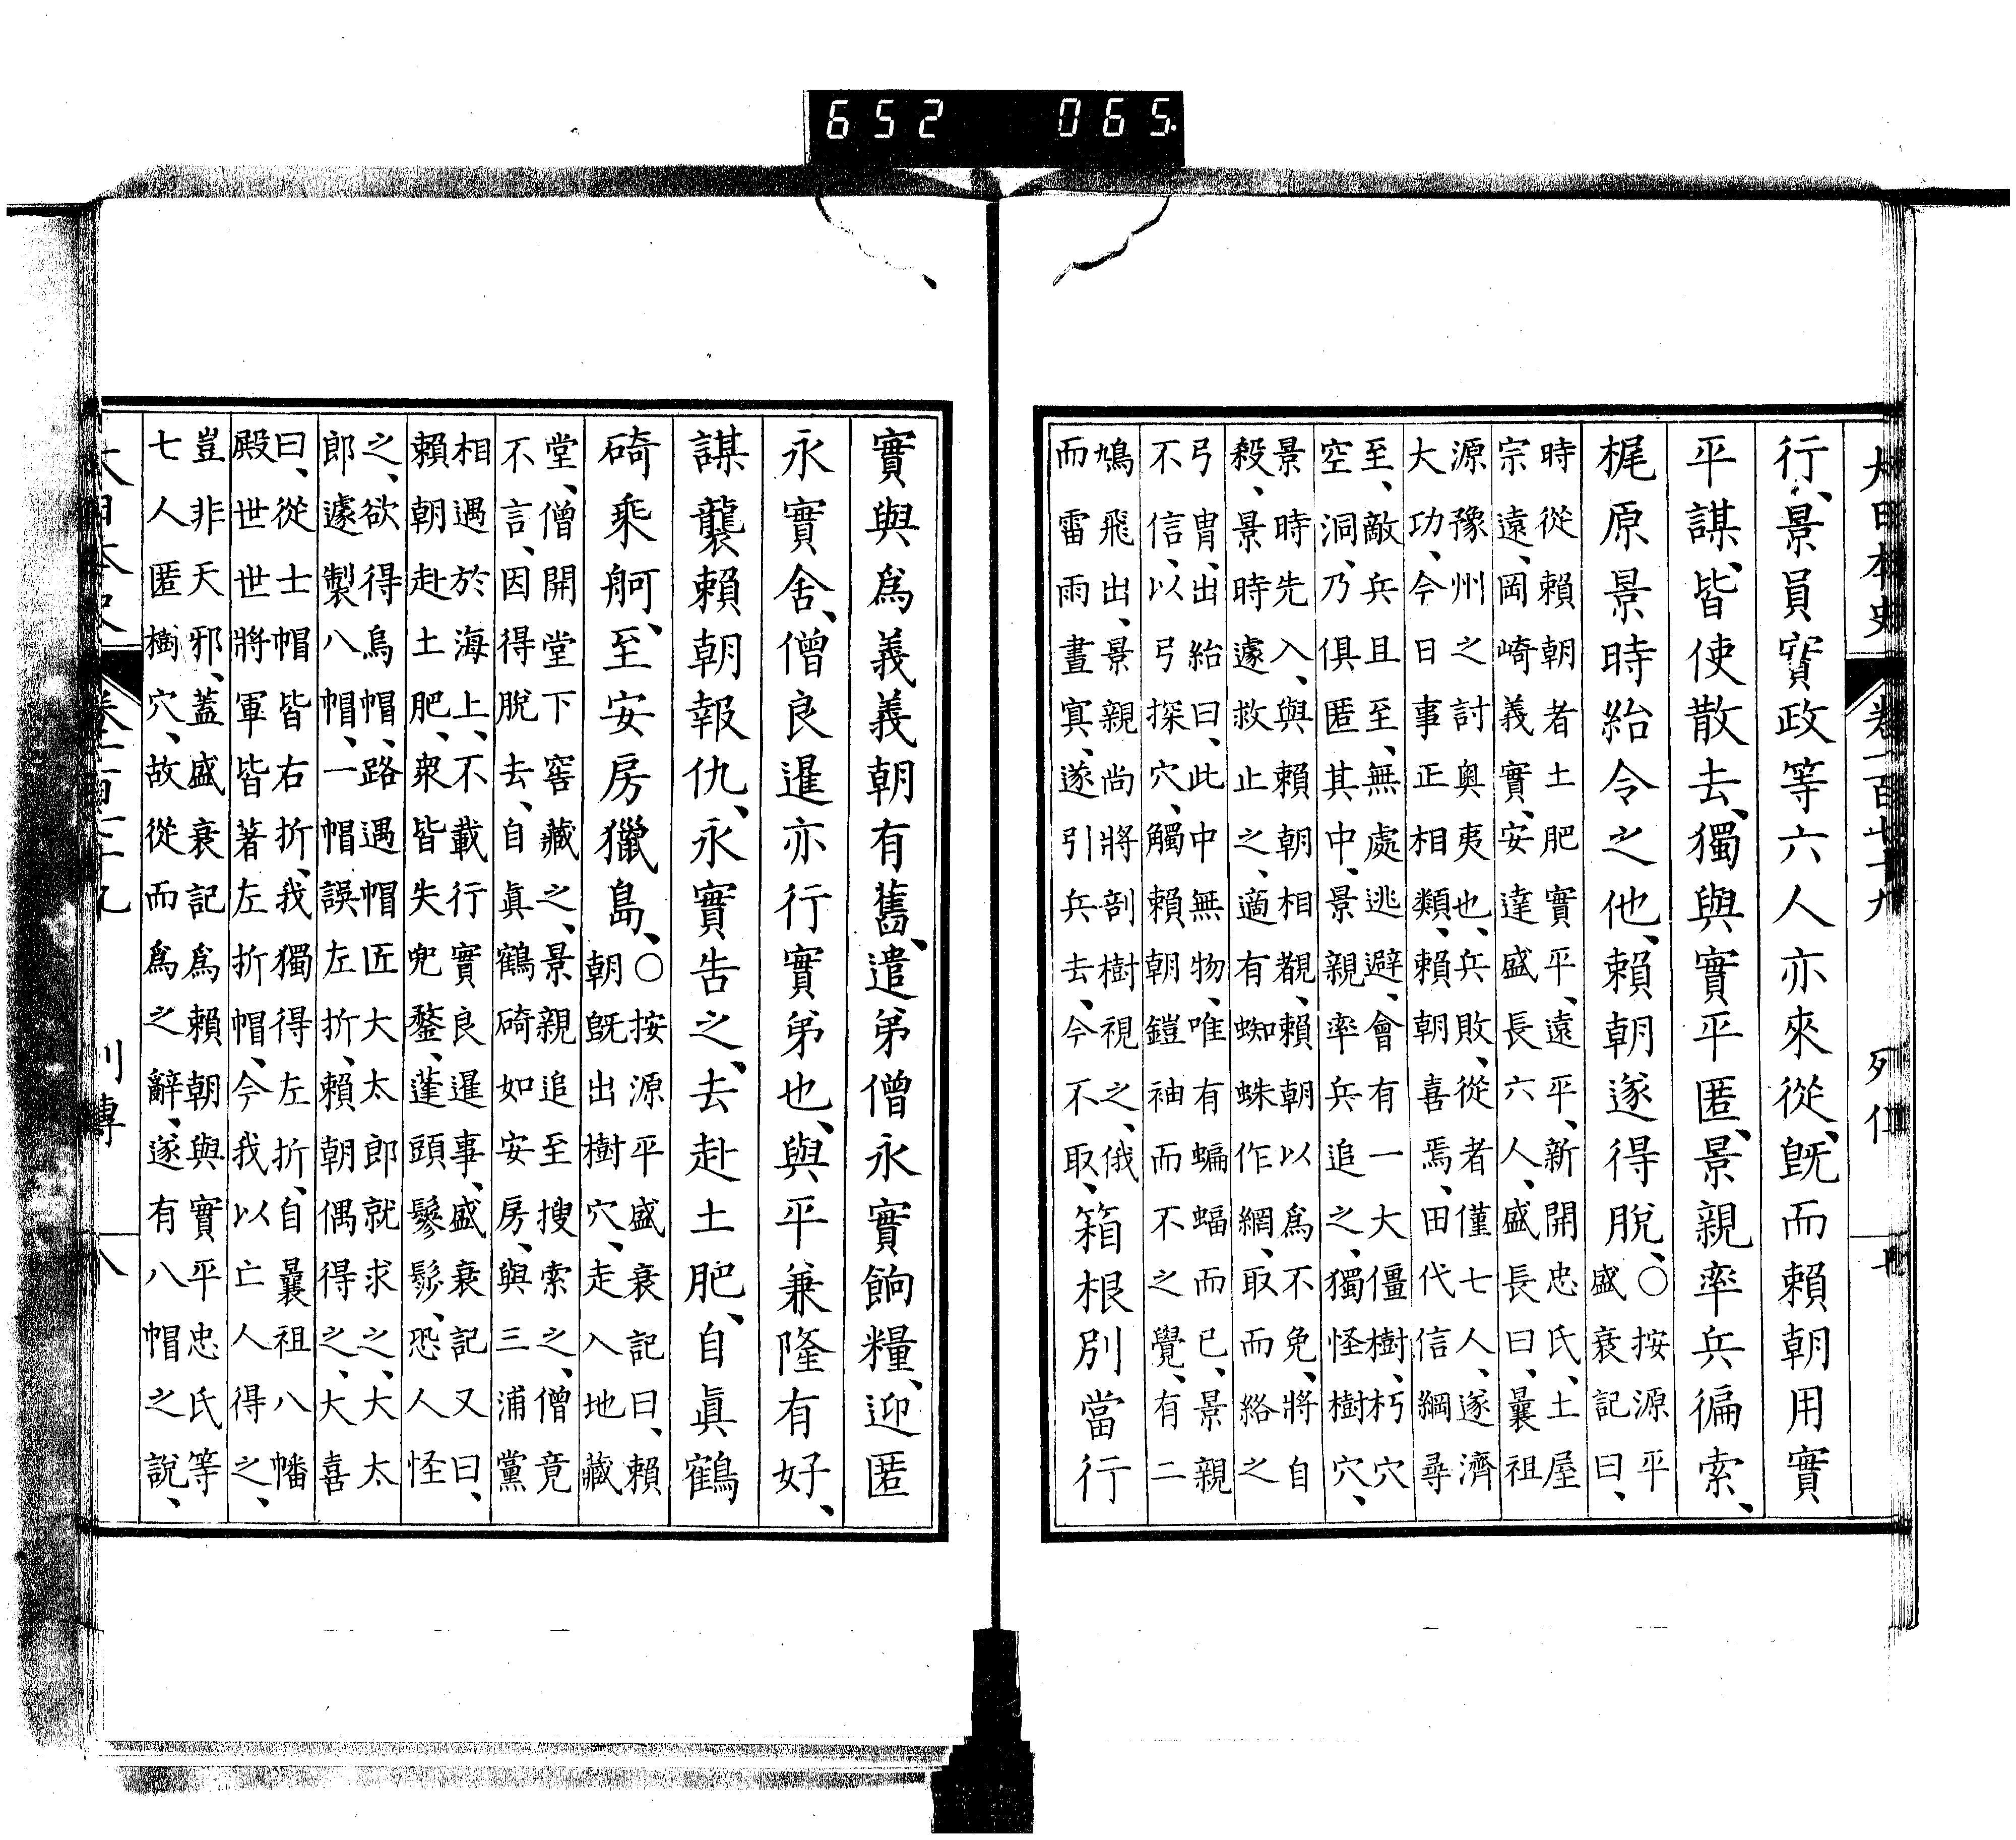 652 065
大日本史 卷一百七十九 列傳 七
行、景員實政等六人亦來從、既而賴朝用實
平謀、皆使散去、獨與實平匿、景親率兵徧索、
梶原景時紿令之他、賴朝遂得脫、○按源平
盛衰記曰、
時從賴朝者土肥實平、遠平、新開忠氏、土屋
宗遠、岡崎義實、安達盛長六人、盛長曰、曩祖
源豫州之討奧夷也、兵敗、從者僅七人、遂濟
大功、今日事正相類、賴朝喜焉、田代信綱尋
至、敵兵且至、無處逃避、會有一大僵樹、朽穴
空洞、乃俱匿其中、景親率兵追之、獨怪樹穴、
景時先入、與賴朝相覩、賴朝以爲不免、將自
殺、景時遽救止之、適有蜘蛛作網、取而絡之
弓冑、出紿曰、此中無物、唯有蝙蝠而已、景親
不信、以弓探穴、觸賴朝鎧袖而不之覺、有二
鳩飛出、景親尚將剖樹視之、俄
而雷雨晝冥、遂引兵去、今不取、箱根別當行
實與爲義義朝有舊、遣弟僧永實餉糧、迎匿
永實舍、僧良暹亦行實弟也、與平兼隆有好、
謀襲賴朝報仇、永實告之、去赴土肥、自眞鶴
碕乘舸、至安房獵島、○按源平盛衰記曰、賴
朝既出樹穴、走入地藏
堂、僧開堂下窖藏之、景親追至搜索之、僧竟
不言、因得脫去、自眞鶴碕如安房、與三浦黨
相遇於海上、不載行實良暹事、盛衰記又曰、
賴朝赴土肥、衆皆失兜鍪、蓬頭鬖髿、恐人怪
之、欲得烏帽、路遇帽匠大太郎就求之、大太
郎遽製八帽、一帽誤左折、賴朝偶得之、大喜
曰、從士帽皆右折、我獨得左折、自曩祖八幡
殿世世將軍皆著左折帽、今我以亡人得之、
豈非天邪、蓋盛衰記爲賴朝與實平忠氏等
七人匿樹穴、故從而爲之辭、遂有八帽之說、
大日本史 卷一百七十九 列傳 八